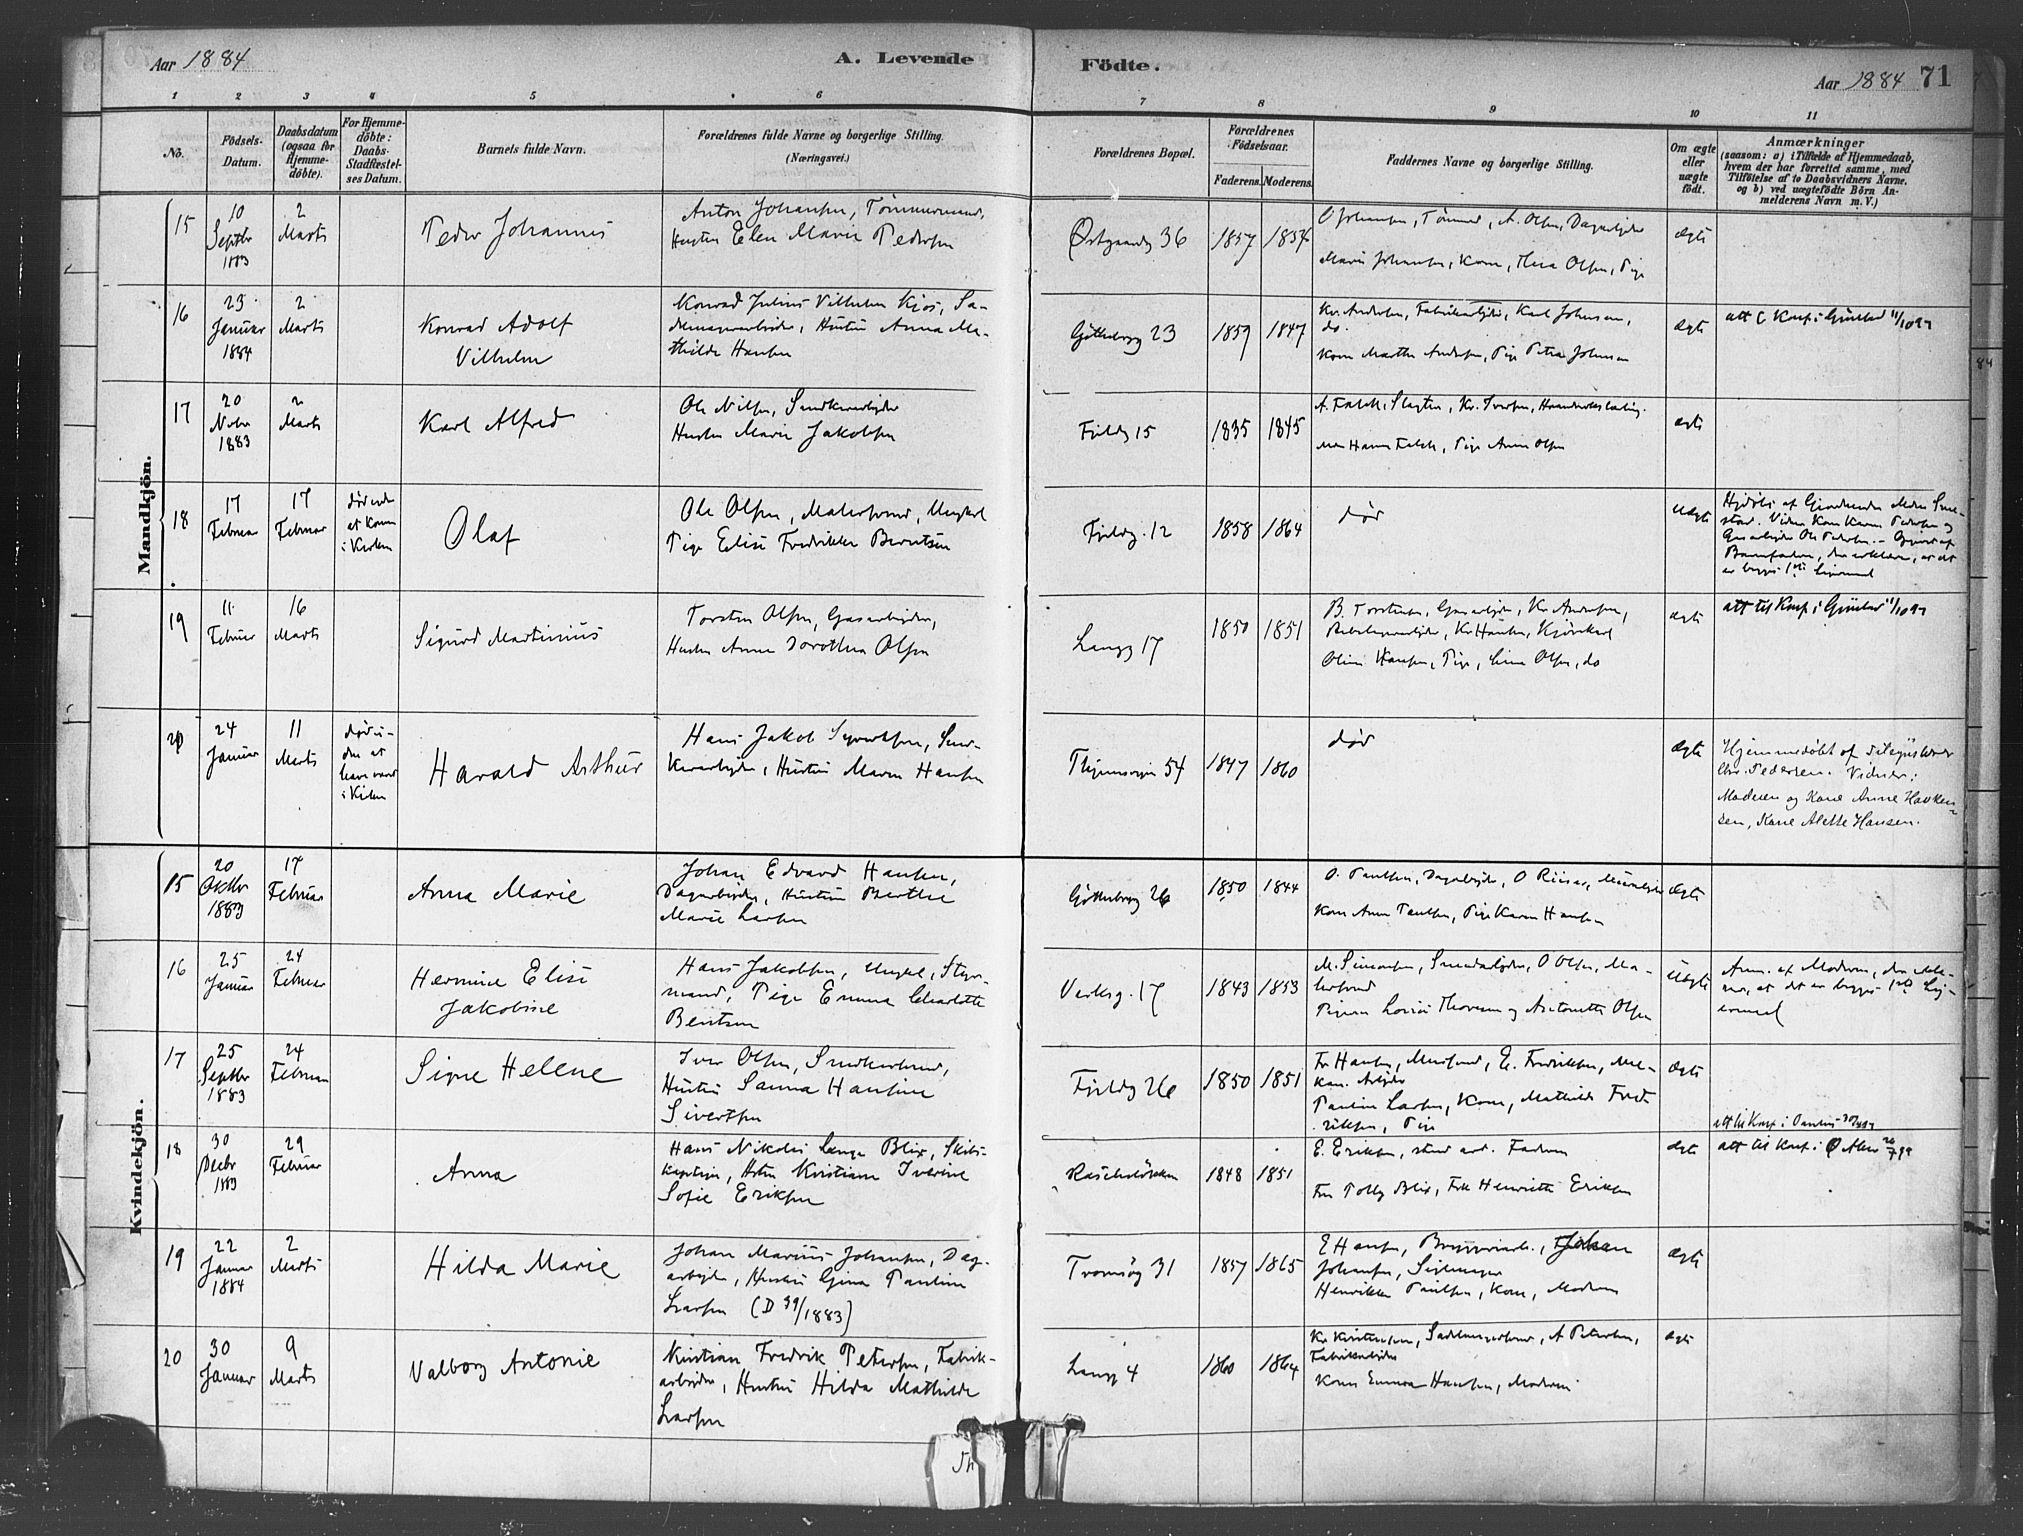 Aar 1884
A. Levende
Födte.
Aar 1884 71
1 2 3 4 5 6 7 8 9 10 11
No.
Födsels-
Datum.
Daabsdatum
(ogsaa for
Hjemme-
döbte).
For Hjemme-
döbte:
Daabs-
Stadfæstel-
ses Datum.
Barnets fulde Navn.
Forældrenes fulde Navne og borgerlige Stilling.
(Næringsvei.)
Forældrenes Bopæl.
Forældrenes
Födselsaar.
Faderens. Moderens.
Faddernes Navne og borgerlige Stilling.
Om ægte
eller
uægte
födt.
Anmærkninger
(saasom: a) i Tilfælde af Hjemmedaab,
hvem der har forrettet samme, med
Tilföielse af to Daabsvidners Navne.
og b) ved uægtefödte Börn An-
melderens Navn m. V.)
Mandkjön.
15
10
Septbr
1883
2
Marts
Peder Johannes
Anton Johansen, Tømmermand,
Hustru Elen Marie Pedersen
Østgaardsg 36
1857 1854
O Johansen, Tømmerm, A. Olsen, Dagarbejder
Marie Johansen, Kone, Thea Olsen, Pige
Ægte
16
23
Januar
1884
2
Marts
Konrad Adolf
Vilhelm
Konrad Julius Vilhelm Kjos, Sa-
delmagerarbejder, Hustru Anna Ma-
thilde Hansen
Gøtteborgg 23
1859 1847
Kr. Andersen, Fabrikarbejder, Karl Johnsen,
do.
Kone Marthe Andersen, Pige Petra Johnsen
Ægte
att t Konf. i Grønland 11/10 97
17
20
Novbr
1883
2
Marts
Karl Alfred
Ole Nilsen, Snedkerarbejder
Hustru Marie Jakobsen
Fjeldg 15
1835 1845
A. Falck, Slagter, Kr. Iversen,
Hanna Falck, Pige Anna Olsen
Ægte
18
17
Februar
17
Februar
død inden
at komme
i Kirken
Olaf
Ole Olsen, Malersvend, Ungkarl
Pige Elise Fredrikke Berntsen
Fjeldg. 12
1858 1864
død
Uægte
Hjdøbt af Gjordemoder
Vidner Kone Karen Pedersen og
Gasarbejder Ole Pedersen.
Barnefaderen, der erklærer, at det
er begges 1ste Lejermaal
19
11
Februar
16
Marts
Sigurd Martinius
Torsten Olsen, Gasarbejder,
Hustru Anne Dorothea Olsen
Langg 17
1850 1851
B. Torstensen, Gasarbejder, Kr Andersen,
Kr Hansen, Kjørekarl
Oline Hansen, Pige, Olsen, do
Ægte
att til Konf. i Grønland 11/10 97
20
24
Januar
11
Marts
død u-
den at
have været
i Kirken
Harald Arthur
Hans Jakob Syvertsen, Sned-
kerarbejder, Hustru Maren Hansen
54
1847 1860
død
Ægte
Hjemmedøbt af
Chr. Pedersen. Vidner:
Moderen og Kone Anne Haaken-
sen, Kone Alette Hansen.
Kvindekjön.
15
20
Oktbr
1883
17
Februar
Anna Marie
Johan Edvard Hansen,
Dagarbejder, Hustru Berthe
Marie Larsen
Gøtteborgg 26
1850 1844
O. Paulsen, Dagarbejder, O Riiser, Murarbejder
Kone Anne Paulsen, Pige Karen Hansen
Ægte
16
25
Januar
24
Februar
Hermine Elise
Jakobine
Hans Jakobsen, Ungkl, Styr-
mand, Pige Emma Charlotte
Bentsen
Verksg. 17
1843 1853
M. Simonsen, Smedarbejder, O Olsen, Ma-
lersvend
Pigerne Lovise Thoresen og Antonette Olsen
Uægte
Anm. af Moderen, der erklæ-
rer, at det er begges 1ste Lej-
ermaal
17
25
Septbr
1883
24
Februar
Signe Helene
Iver Olsen, Snedkersvend,
Hustru Sanna Hansine
Sivertsen
Fjeldg 26
1850 1851
Fr Hansen, Mursvend, E. Fredriksen, Me-
kan. Arbejder
Pauline Larsen, Kone, Mathilde Fred-
riksen, Pige
Ægte
att til Konf. i
18
30
Decbr
1883
29
Februar
Anna
Hans Nikolai Lange Blix, Skibs-
kaptejn, Hstru Kristiane Iverine
Sofie Eriksen
Rascheløkken
1848 1851
E. Eriksen, stud. Faderen
Fru Tolly Blix, Frk Henriette Eriksen
Ægte
att til Konf. i Ø Aker
19
22
Januar
1884
2
Marts
Hilda Marie
Johan Marius Johansen, Dag-
arbejder, Hustru Gina Pauline
Larsen (D 39/1883)
Tromsøg 31
1857 1865
E Hansen, Johan
Johansen, Sejlmager
Henrikke Paulsen, Kone, Moderen
Ægte
20
30
Januar
9
Marts
Valborg Antonie
Kristian Fredrik Petersen, Fabrik-
arbejder, Hustru Hilda Mathilde
Larsen
Langg 4
1860 1864
Kr Kristensen, Sadelmagersvend, A Petersen,
Fabrikarbejder
Kone Emma Hansen, Moderen
Ægte